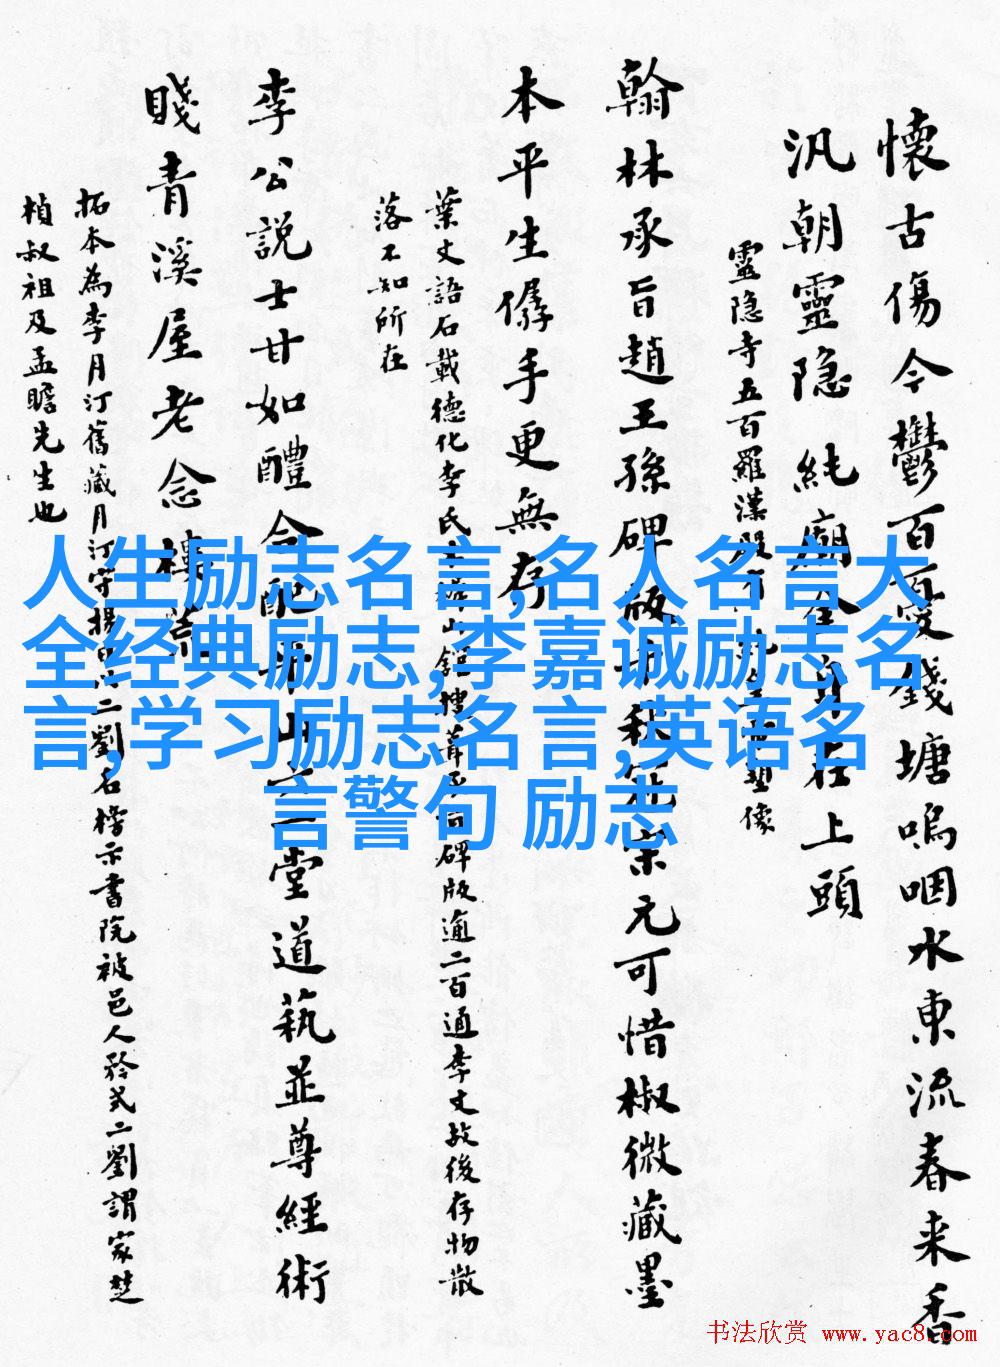 懷古傷今鬱百憂錢塘嗚咽水東流春来香
汎朝靈隐純廟金身在上頭
靈隐寺五百羅漢殿塑像
翰林承旨趙王孫碑版宋元可惜椒微藏墨
本平生手更無存
葉文語石載德化李氏山館碑版逾二百通李文故後存物散
落不知所在
李公説士甘如醴合配山二堂道藝並尊經術
賤青溪屋老念樓
拓本為李月汀舊藏月汀守揚二劉名榜示書院被邑人矜式二劉謂家楚
楨叔祖及孟瞻先生也
人生励志名言,名人名言大
全经典励志,李嘉诚励志名
言,学习励志名言,英语名
言警句 励志
书法欣赏 www.yac8.com